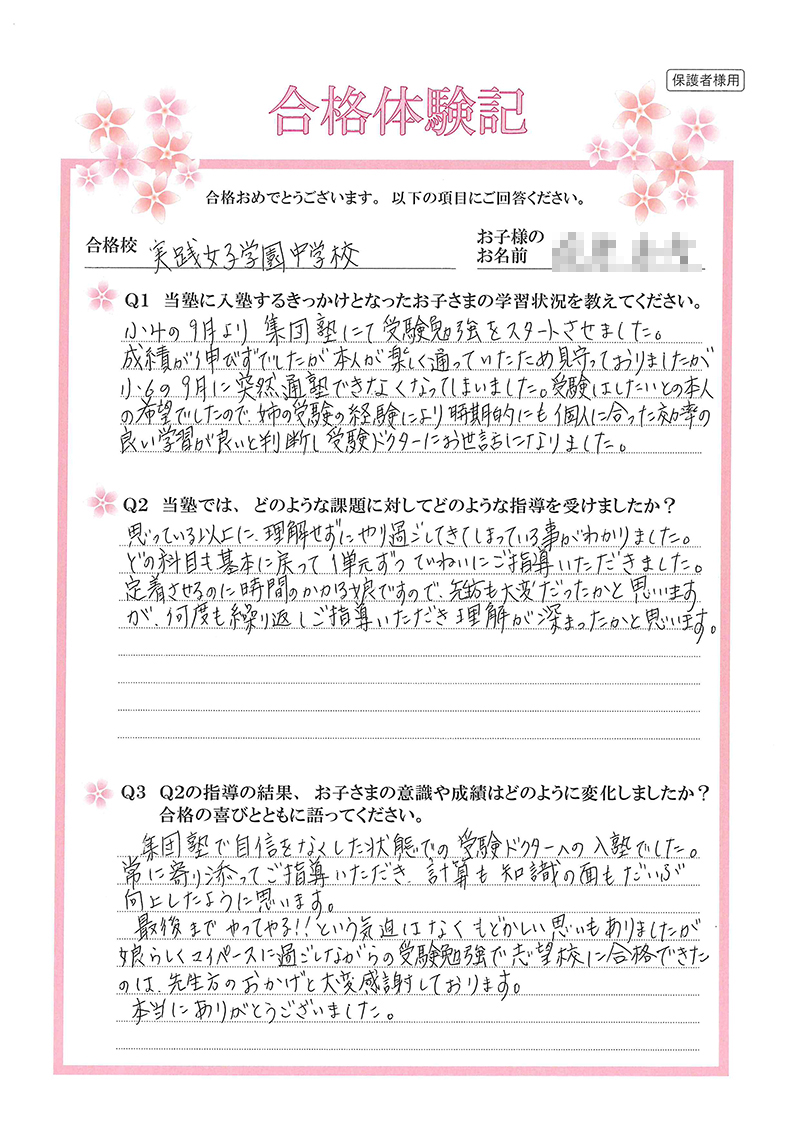 保護者様用
合格体験記
合格おめでとうございます。以下の項目にご回答ください。
合格校 実践女子学園中学校
お子様の
お名前
Q1 当塾に入塾するきっかけとなったお子さまの学習状況を教えてください。
小4の9月より 集団塾にて受験勉強をスタートさせました。
成績が伸びずでしたが本人が楽しく通っていたため見守っておりましたが
小6の9月に突然通塾できなくなってしまいました。受験はしたいとの本人
の希望でしたので、姉の受験の経験により時期的にも個人に合った効率の
良い学習が良いと判断し受験ドクターにお世話になりました。
Q2 当塾では、どのような課題に対してどのような指導を受けましたか？
思っている以上に、理解せずにやり過ごしてきてしまっている事がわかりました。
どの科目も基本に戻って1単元ずつていねいにご指導いただきました。
定着させるのに時間のかかる娘ですので、先生方も大変だったかと思います
が、何度も繰り返しご指導いただき理解が深まったかと思います。
Q3 Q2の指導の結果、お子さまの意識や成績はどのように変化しましたか？
合格の喜びとともに語ってください。
集団塾で自信をなくした状態での受験ドクターへの入塾でした。
常に寄り添ってご指導いただき、計算も知識の面もだいぶ
向上したように思います。
最後までやってやる!!という気迫はなくもどかしい思いもありましたが
娘らしくマイペースに過ごしながらの受験勉強で志望校に合格できた
のは、先生方のおかげと大変感謝しております。
本当にありがとうございました。